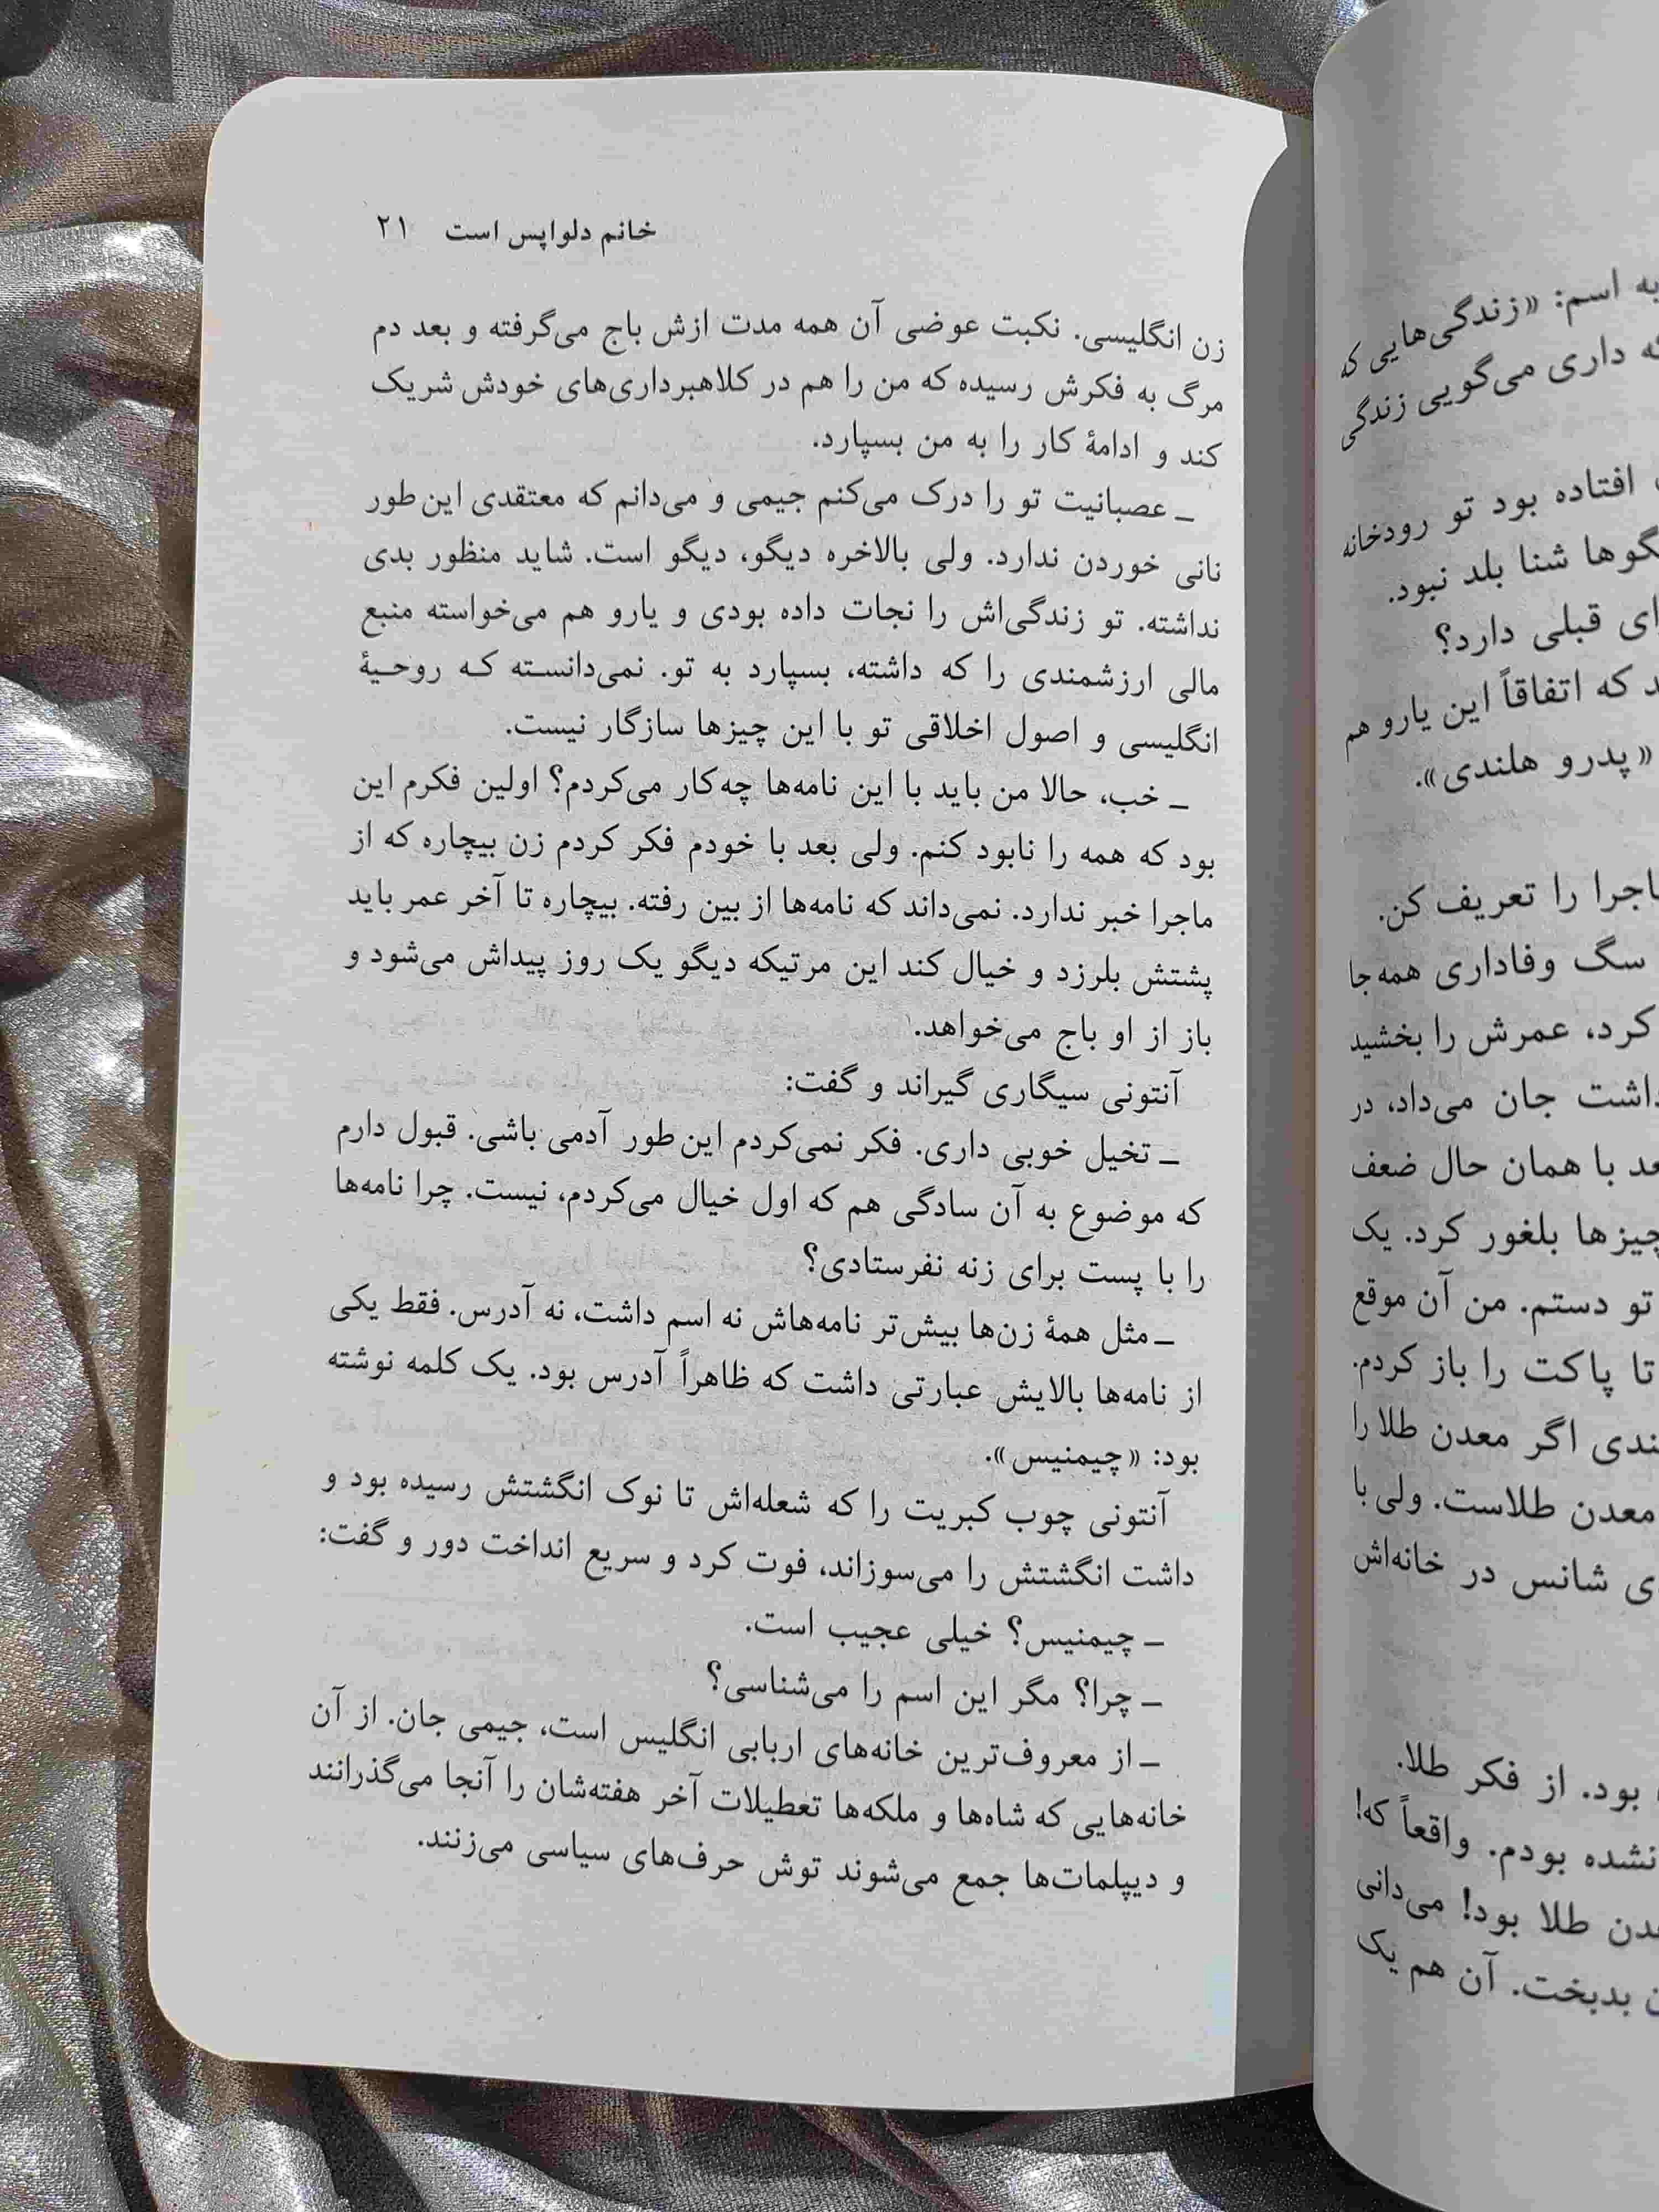 خانم دلواپس است ۲۱
زن انگلیسی. نکبت عوضی آن همه مدت ازش باج می‌گرفته و بعد دم
مرگ به فکرش رسیده که من را هم در کلاهبرداری‌های خودش شریک
کند و ادامهٔ کار را به من بسپارد.
ـ عصبانیت تو را درک می‌کنم جیمی و می‌دانم که معتقدی این‌طور
نانی خوردن ندارد. ولی بالاخره دیگو، دیگو است. شاید منظور بدی
نداشته. تو زندگی‌اش را نجات داده بودی و یارو هم می‌خواسته منبع
مالی ارزشمندی را که داشته، بسپارد به تو. نمی‌دانسته که روحیهٔ
انگلیسی و اصول اخلاقی تو با این چیزها سازگار نیست.
ـ خب، حالا من باید با این نامه‌ها چه‌کار می‌کردم؟ اولین فکرم این
بود که همه را نابود کنم. ولی بعد با خودم فکر کردم زن بیچاره که از
ماجرا خبر ندارد. نمی‌داند که نامه‌ها از بین رفته. بیچاره تا آخر عمر باید
پشتش بلرزد و خیال کند این مرتیکه دیگو یک روز پیداش می‌شود و
باز از او باج می‌خواهد.
آنتونی سیگاری گیراند و گفت:
ـ تخیل خوبی داری. فکر نمی‌کردم این‌طور آدمی باشی. قبول دارم
که موضوع به آن سادگی هم که اول خیال می‌کردم، نیست. چرا نامه‌ها
را با پست برای زنه نفرستادی؟
ـ مثل همهٔ زن‌ها بیش‌تر نامه‌هاش نه اسم داشت، نه آدرس. فقط یکی
از نامه‌ها بالایش عبارتی داشت که ظاهراً آدرس بود. یک کلمه نوشته
بود: «چیمنیس».
آنتونی چوب کبریت را که شعله‌اش تا نوک انگشتش رسیده بود و
داشت انگشتش را می‌سوزاند، فوت کرد و سریع انداخت دور و گفت:
ـ چیمنیس؟ خیلی عجیب است.
ـ چرا؟ مگر این اسم را می‌شناسی؟
ـ از معروف‌ترین خانه‌های اربابی انگلیس است، جیمی جان. از آن
خانه‌هایی که شاه‌ها و ملکه‌ها تعطیلات آخر هفته‌شان را آنجا می‌گذرانند
و دیپلمات‌ها جمع می‌شوند توش حرف‌های سیاسی می‌زنند.
به اسم: «زندگی‌هایی که
داری می‌گویی زندگی
افتاده بود تو رودخانه
شنا بلد نبود.
قبلی دارد؟
که اتفاقاً این یارو هم
«پدرو هلندی».
را تعریف کن.
سگ وفاداری همه‌جا
کرد، عمرش را بخشید
جان می‌داد، در
با همان حال ضعف
بلغور کرد. یک
تو دستم. من آن موقع
تا پاکت را باز کردم.
اگر معدن طلا را
معدن طلاست. ولی با
شانس در خانه‌اش
بود. از فکر طلا.
نشده بودم. واقعاً که!
طلا بود! می‌دانی
بدبخت. آن هم یک